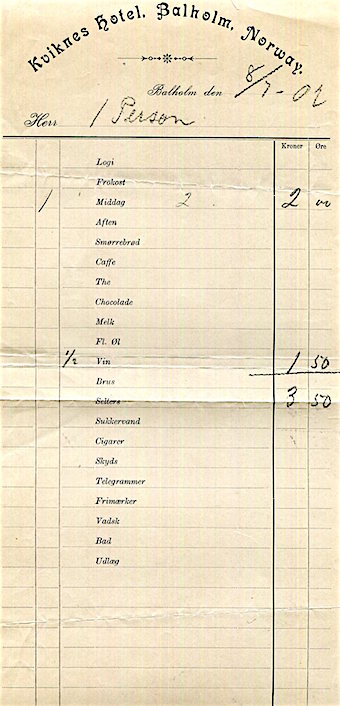 Kviknes Hotel, Balholm, Norway.
Balholm den 8/7-02
Herr 1 Person
Kroner Øre
Logi
Frokost
1 Middag 2 2 00
Aften
Smørrebrød
Caffe
The
Chocolade
Melk
Fl. Øl
1/2 Vin 1 50
Brus
Selters 3 50
Sukkervand
Cigarer
Skyds
Telegrammer
Frimærker
Vadsk
Bad
Udlæg